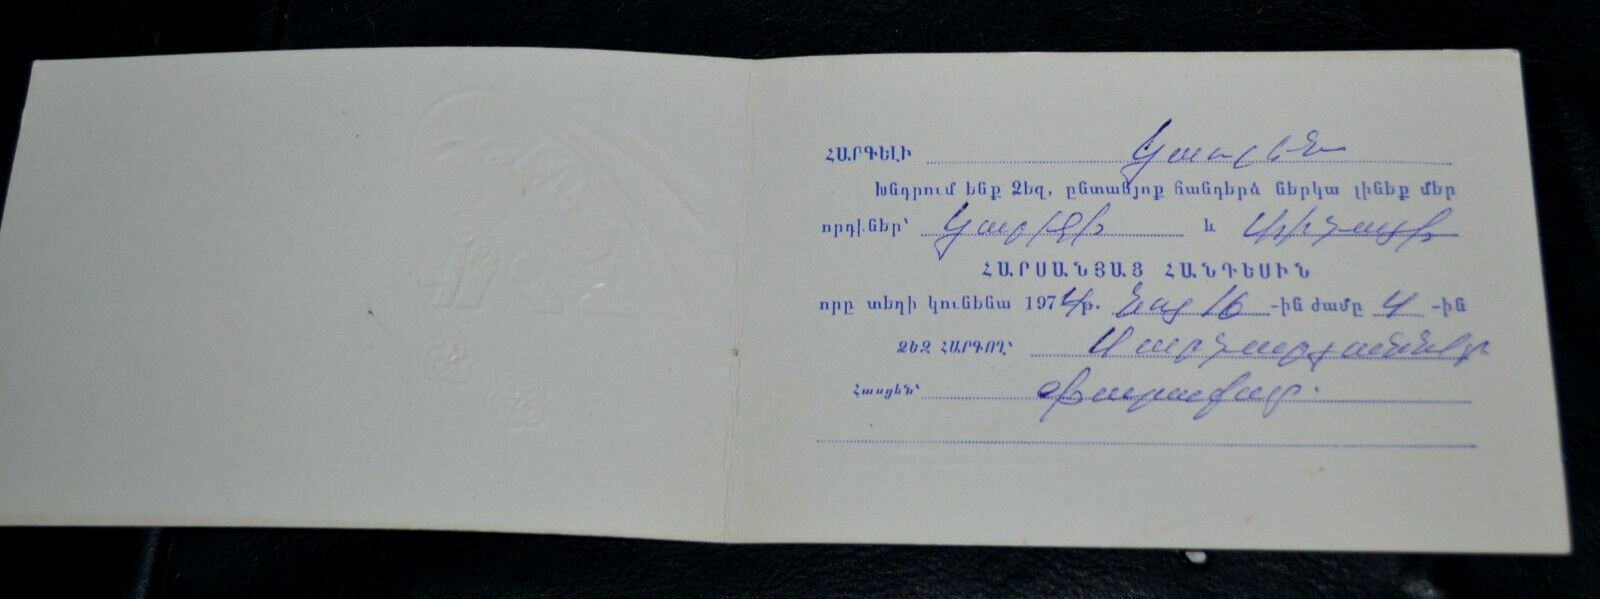 ՀԱՐԳԵԼԻ Կարեն
Խնդրում ենք Ձեզ, ընտանյոք հանդերձ ներկա լինեք մեր
որդիներ՝ և
ՀԱՐՍԱՆՅԱՑ ՀԱՆԴԵՍԻՆ
որը տեղի կունենա 1974թ. 16-ին ժամը 4-ին
ՁԵԶ ՀԱՐԳՈՂ՝
Հասցեն՝ Փարաքար.